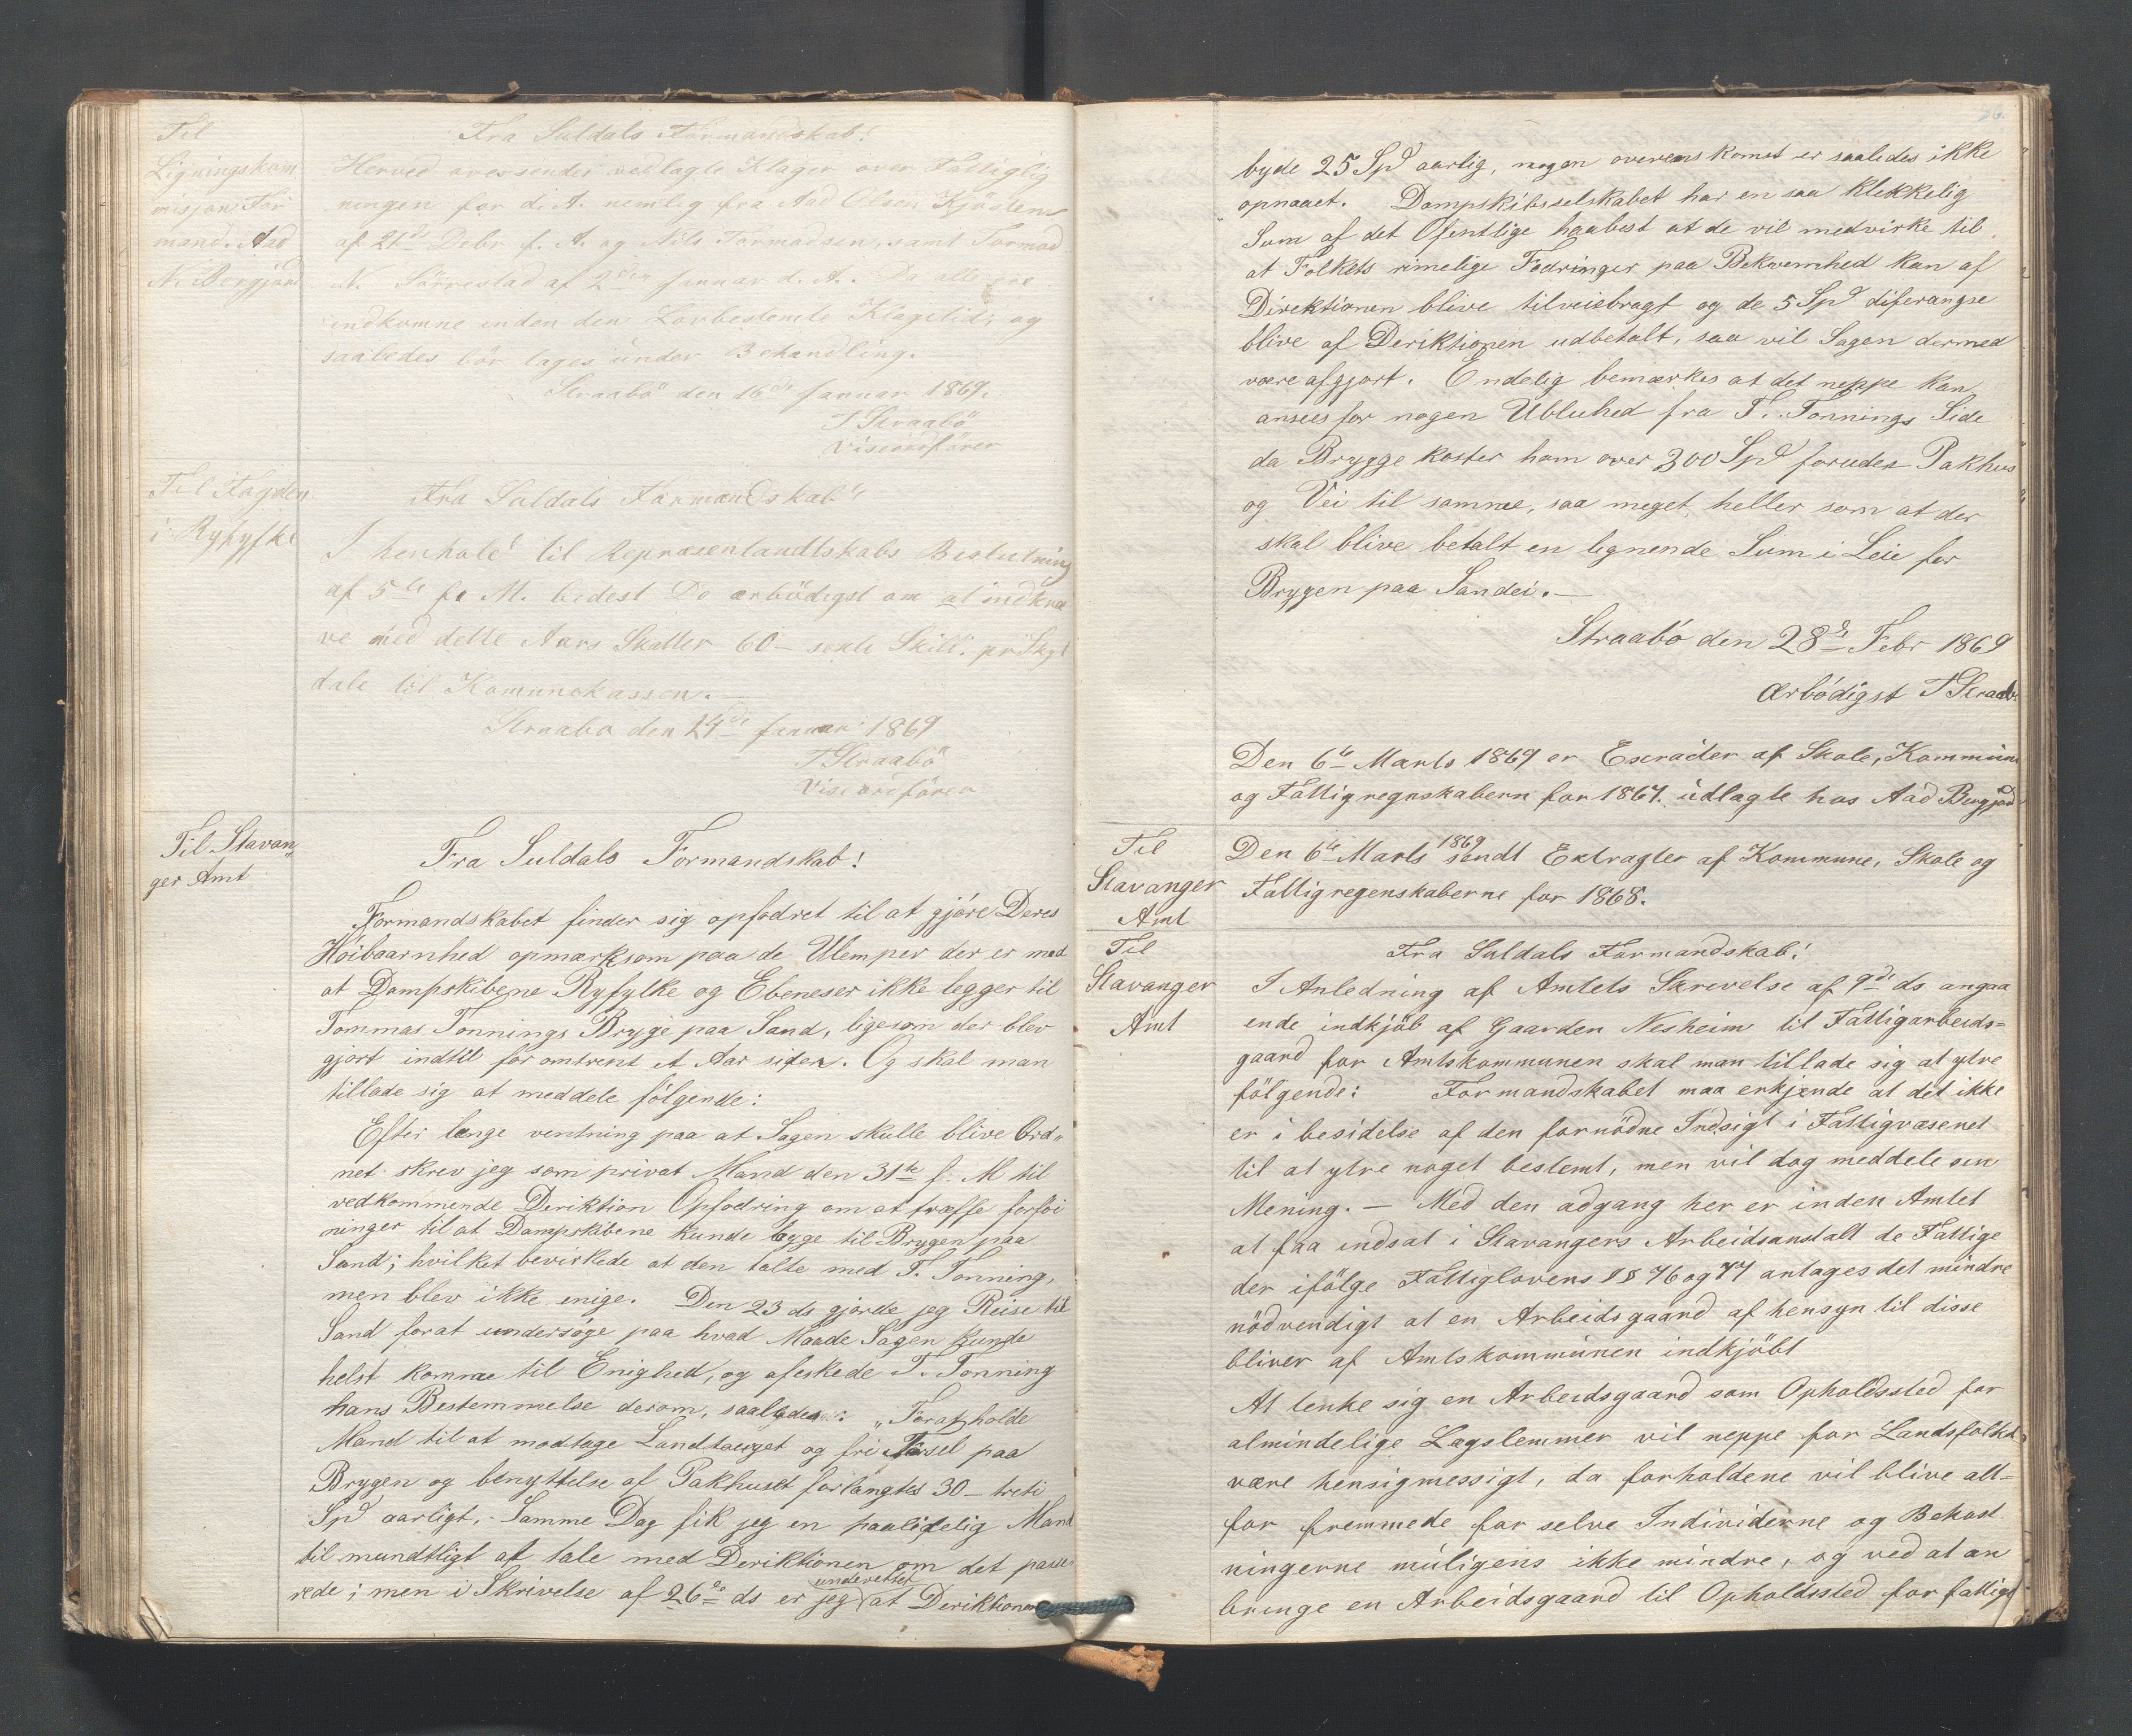 Til
Ligningskom
misjons For
mand. Aad
N. Bergjord
Fra Suldals Formandskab!
Herved oversendes vedlagte Klager over Fattiglig
ningen for d. A. nemlig fra Aad Olsen
af 21de Debr f. A. og Nils Tormodsen, samt Tormod
N. Sörrestad af 2den Januar d. A. Da alle ere
indkomne inden den Lovbestemte Klagetid, og
saaledes bör tages under Behandling.
Straabö den 16de Januar 1869.
T Straabö
Viseordförer
Til Fogden
i Ryfylke
Fra Suldals Formandskab!
I henhold til Repræsentandtskabs Beslutning
af 5te f. M. bedest De ærbödigst om at indkræ
ve med dette Aars Skatter 60 – sexti Skill. pr Sky
dale til Komunekassen. —
Straabø den 24de Januar 1869
T Straabö
Viseordförer
Til Stavan„
ger Amt
Fra Suldals Formandskab!
Formandskabet finder sig opfodret til at gjöre Deres
Höibaarnhed opmærksom paa de Ulemper der er med
at Dampskibene Ryfylke og Ebeneser ikke legger til
Tommas Tonnings Brygge paa Sand, ligesom der blev
gjort indtil for omtrent et Aar siden. Og skal man
tillade sig at meddele fölgende:
Efter længe ventning paa at Sagen skulle blive Ord„
net skrev jeg som privat Mand den 31te f. M til
vedkommende Deriktion Opfodring om at træffe forföi
ninger til at Dampskibene kunde legge til Brygen paa
Sand; hvilket bevirkede at den talte med T. Tonning,
men blev ikke enige. Den 23 ds gjorde jeg Reise til
Sand forat undersöge paa hvad Maade Sagen kunde
helst komme til Enighed, og afeskede T. Tonning
hans Bestemmelse derom, saaledes: „Forat holde
Mand til at modtage Landtauget og fri Færsel paa
Brygen og benyttelse af Pakhuset forlangtes 30 – treti
Spd aarligt. Samme Dag fik jeg en paalidelig Mand
til mundtligt at tale med Deriktionen om det passe
rede; men i Skrivelse af 26de ds er jeg underettet at Deriktionen
76.
byde 25 Spd aarlig, nogen overenskomst er saaledes ikke
opnaaet. Dampskibsselskabet har en saa klekkelig
Sum af det Ofentlige haabest at de vil medvirke til
at Folkets rimelige Fodringer paa Bekvemhed kan af
Direktionen blive tilveiebragt og de 5 Spd diferangse
blive af Deriktionen udbetalt, saa vil Sagen dermed
være afgjort. Endelig bemærkes at det neppe kan
ansees for nogen Ubluhed fra T. Tonnings Side
da Brygge koster ham over 300 Spd foruden Pakhus
og Vei til samme, saa meget heller som at der
skal blive betalt en lignende Sum i Leie for
Brygen paa Sandei. —
Straabö den 28de Febr 1869
Ærbödigst T Straabö
Den 6te Marts 1869 er Exrader af Skole, Kommune
og Fattigregnskabern for 1867. udlagte hos Aad Bergjord
Til
Stavanger
Amt
Den 6te Marts 1869 sendt Extragter af Kommune, Skole og
Fattigregenskaberne for 1868.
Til
Stavanger
Amt
Fra Suldals Formandskab!
I Anledning af Amtets Skrivelse af 9de ds angaa
ende indkjöb af Gaarden Nesheim til Fattigarbeids=
gaard for Amtskommunen skal man tillade sig at ytre
fölgende: Formandskabet maa erkjende at det ikke
er i besidelse af den fornödne Indsigt i Fattigvæsenet
til at ytre noget bestemt, men vil dog meddele sin
Mening. — Med den adgang her er inden Amtet
at faa indsat i Stavangers Arbeidsanstalt de Fattige
der ifölge Fattiglovens §§ 76 og 77 antages det mindre
nödvendigt at en Arbeidsgaard af hensyn til disse
bliver af Amtskommunen indkjöbt
At tenke sig en Arbeidsgaard som Opholdssted for
almindelige Lagslemmer vil neppe for Landsfolket
være hensigmessigt, da forholdene vil blive alt=
for fremmede for selve Individerne og Bekost
ningerne muligens ikke mindre, og ved at an
bringe en Arbeidsgaard til Opholdssted for fattige